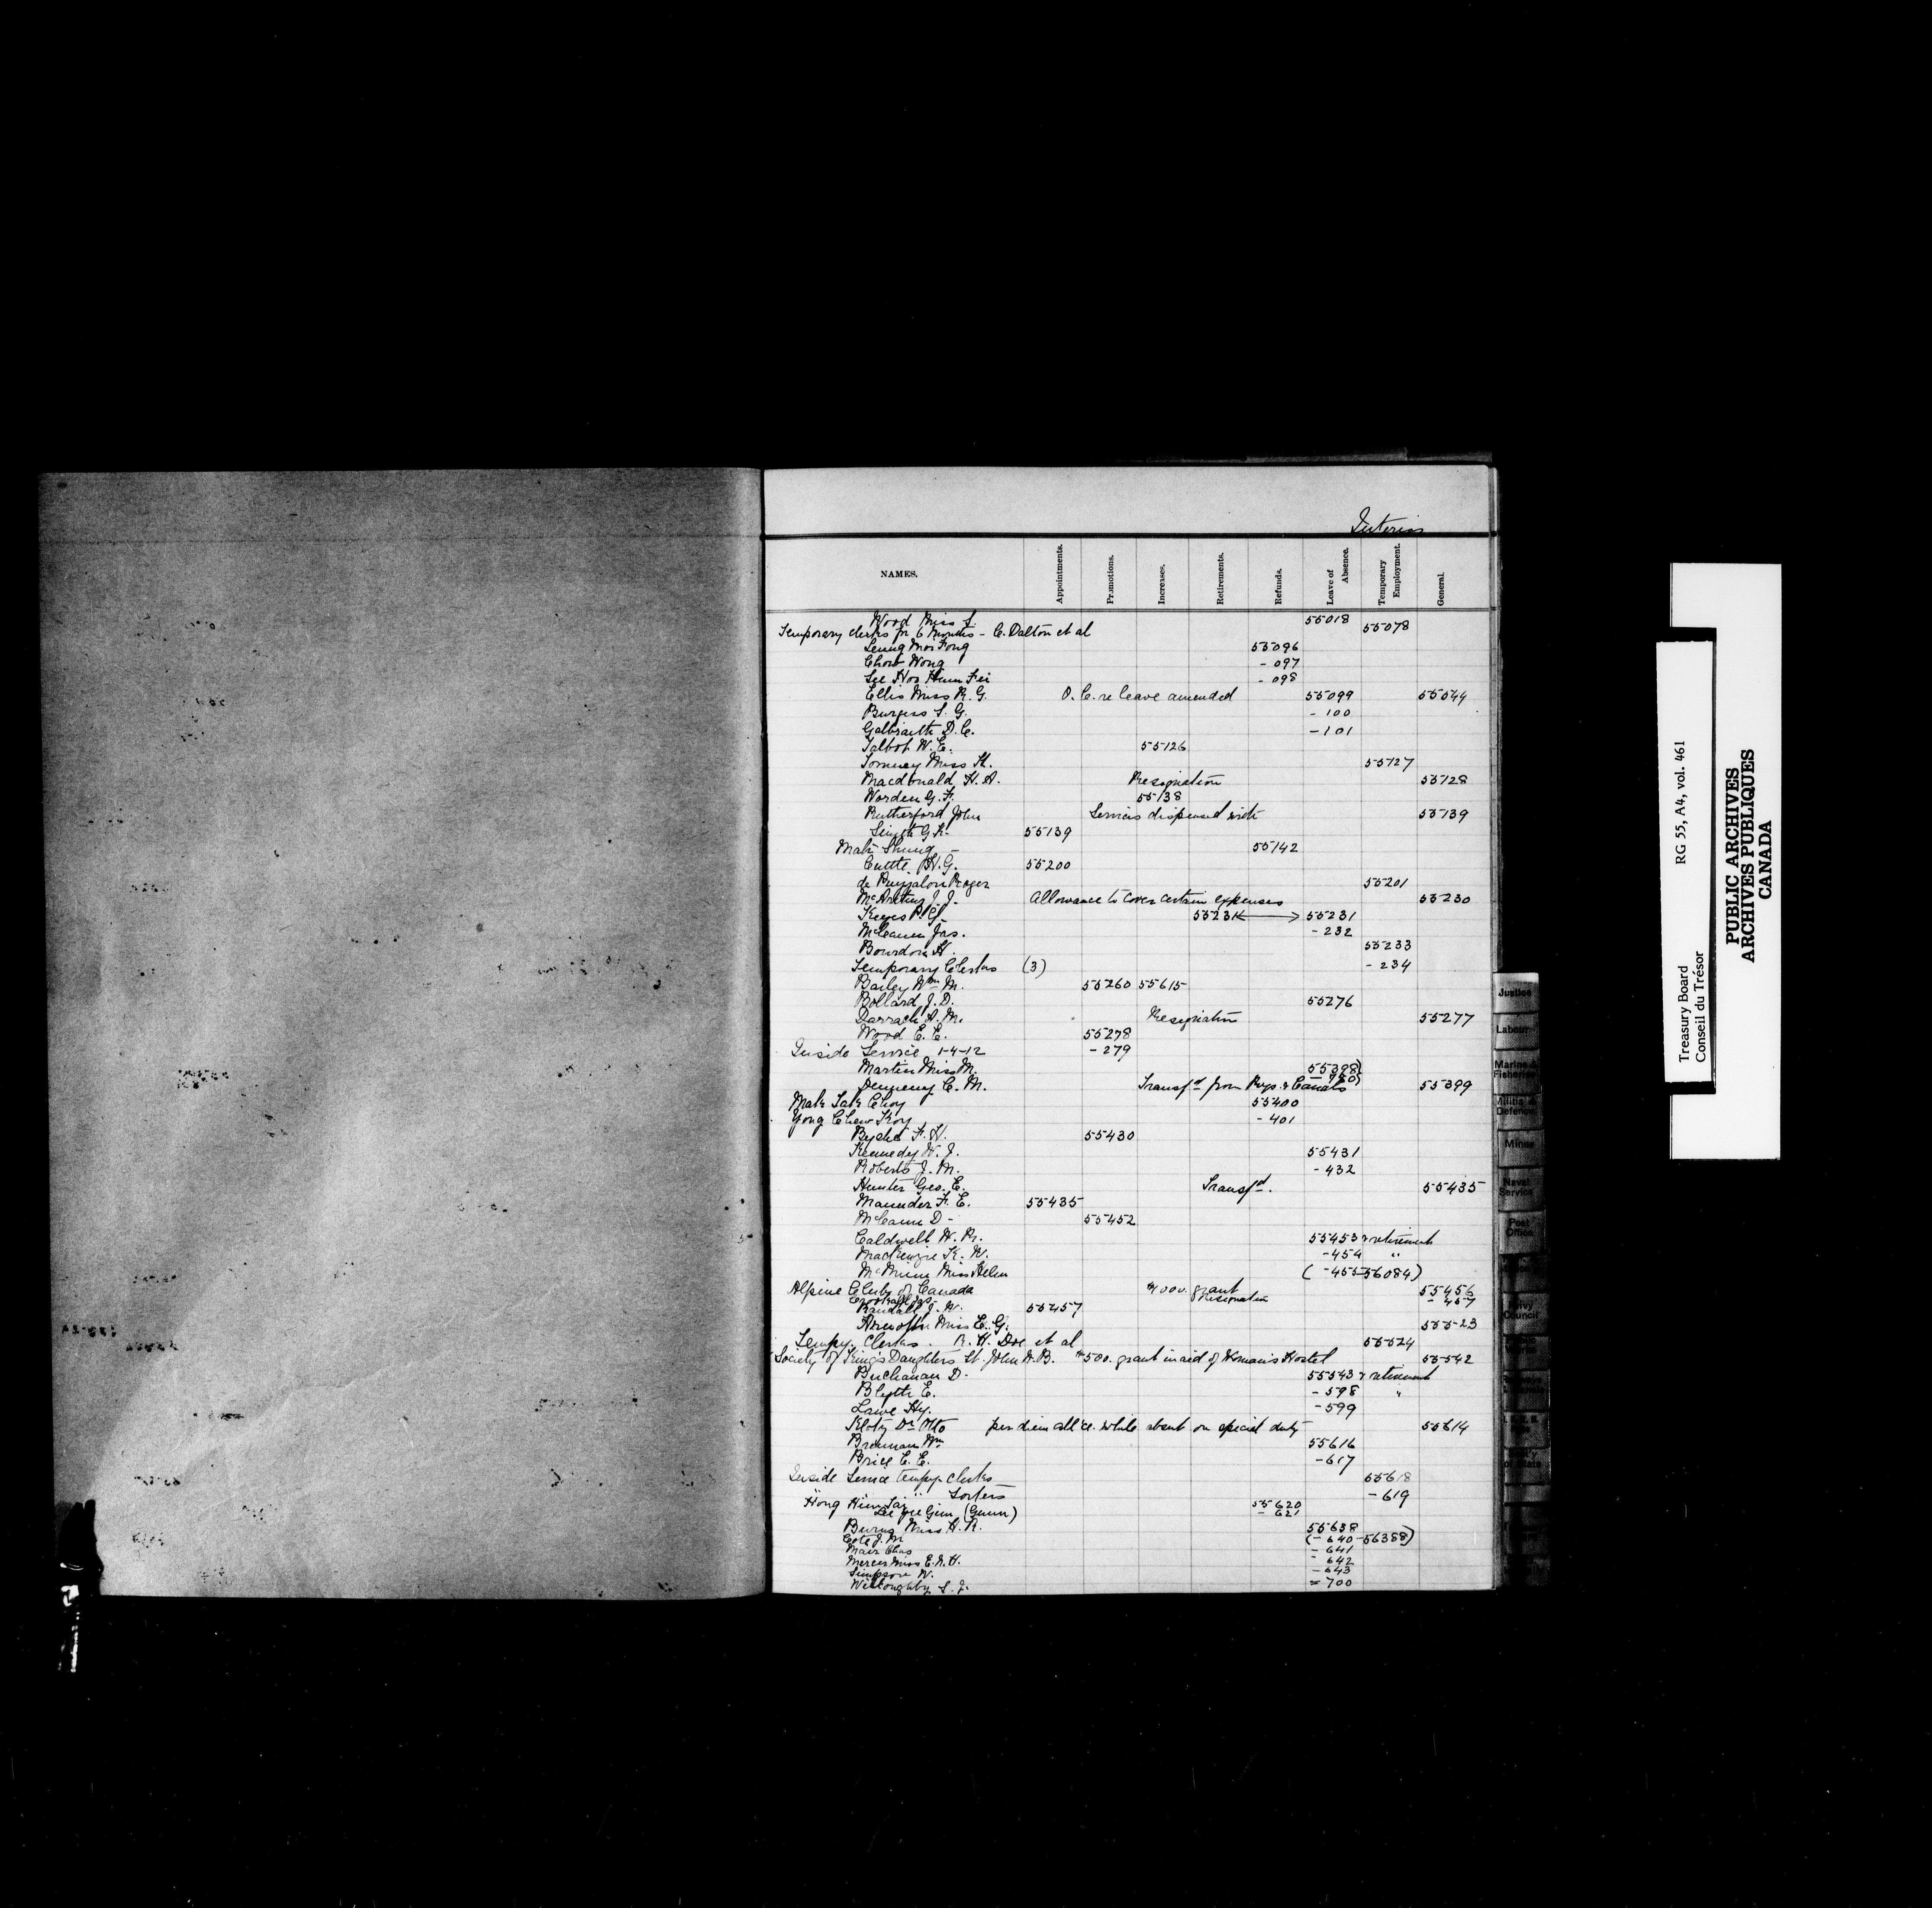 Interior
NAMES. Appointments. Promotions. Increases. Retirements. Refunds. Leave of Absence. Temporary Employment. General.
Wood Miss 55018
Temporary clerks for 6 months - C. Dalton et al 55078
Leung Mor Fong 55096
Chow Wong - 097
Lee Hor Hum Fei - 098
Ellis Miss R. G. O. C. re leave amended 55099 55544
Burgess G. - 100
Galbraith D. C. - 101
Talbot W. E. 55126
Miss K. 55127
Macdonald H. A. Resignation 55128
Worden G. F. 55138
Rutherford John Services dispensed with 55139
55139
Mah Shung - 55142
H. G. 55200
de Roger 55201
McArthur J. J. Allowance to cover certain expenses 55230
Keyes P. G. 55231 ⟷ 55231
Jas. - 232
Bourdon H. 55233
Temporary Clerks (3) - 234
Bailey Wm M. 55260 55615
Bollard J. D. 55276
Darrach A. M. Resignation 55277
Wood E. E. 55278
Inside Service 1-4-12 - 279
Martin Miss M. 55398)
C. M. Transfd from Rys. & Canals 55399
Mah Tak Choy 55400
Yong Chew Koy - 401
F. H. 55430
Kennedy W. J. 55431
Roberts J. M. - 432
Hunter Geo. E. Transfd. 55435
Maunder F. E. 55435
McCann D - 55452
Caldwell W. R. 55453 & retirement
MacKenzie K. W. - 454 "
Miss Helen ( - 455-56084)
Alpine Club of Canada grant 55456
Resignation - 457
Randall J. W. 55457
Miss E. G. 55523
Tempy. Clerks. R. H. Doe et al 55524
Society of King's Daughters St. John N. B. $500. grant in aid of Woman's Hostel 55542
Buchanan D. 55543 & retirement
Blyth E. - 598 "
Lawe Hy. - 599
Klotz Dr Otto per diem allce. while absent on special duty 55614
Brennan Wm 55616
Brice E. E. - 617
Inside Service tempy. clerks 55618
" " Sorters - 619
Hong Him Tai 55620
Lee Yee Gim (Gunn) - 621
Burns Miss H. R. 55638
Cote J. M. (- 640 - 56388)
Mair Chas - 641
Mercer Miss E. N. H. - 642
Simpson W. - 643
Willoughby S. J. - 700
Justice
Labour
Marine & Fisheries
Militia & Defence
Mines
Naval Service
Post Office
Privy Council
Treasury Board RG 55, A4, vol. 461
Conseil du Trésor
PUBLIC ARCHIVES
ARCHIVES PUBLIQUES
CANADA